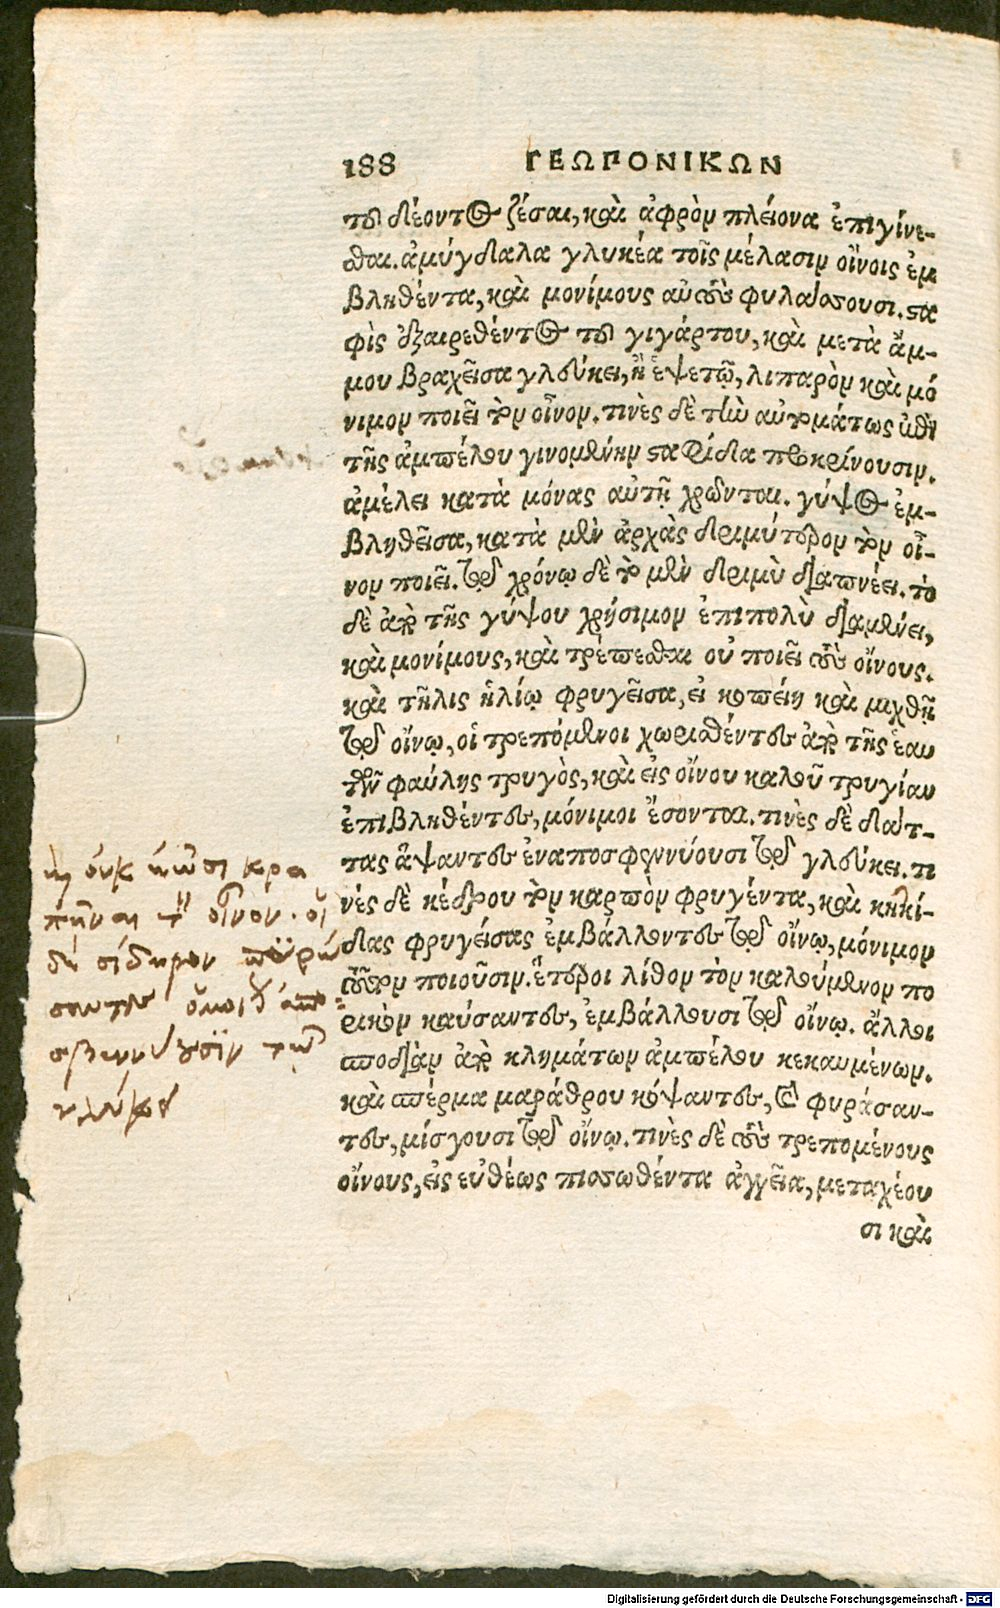 188 ΓΕΩΠΟΝΙΚΩΝ
τοῦ δέοντος ζέσαι, καὶ ἀφρὸν πλείονα ἐπιγίνε-
σθαι. ἀμύγδαλα γλυκέα τοῖς μέλασιν οἴνοις ἐμ
βληθέντα, καὶ μονίμους αὐτοὺς φυλάσσουσι. στα
φὶς ἐξαιρεθέντος τοῦ γιγάρτου, καὶ μετὰ ἄμ-
μου βραχεῖσα γλεύκει, ἢ ἑψετῷ, λιπαρὸν καὶ μό
νιμον ποιεῖ τὸν οἶνον. τινὲς δὲ τὴν αὐτομάτως ἐπὶ
τῆς ἀμπέλου γινομένην σταφίδα προκρίνουσιν.
ἀμέλει κατὰ μόνας αὐτῇ χρῶνται. γύψος ἐμ-
βληθεῖσα, κατὰ μὲν ἀρχὰς δριμύτερον τὸν οἶ-
νον ποιεῖ. τῷ χρόνῳ δὲ τὸ μὲν δριμὺ διαπνέει. τὸ
δὲ ἀπὸ τῆς γύψου χρήσιμον ἐπιπολὺ διαμένει,
καὶ μονίμους, καὶ τρέπεσθαι οὐ ποιεῖ τοὺς οἴνους.
καὶ τῆλις ἡλίῳ φρυγεῖσα, εἰ κοπείη καὶ μιχθῇ
τῷ οἴνῳ, οἱ τρεπόμενοι χωρισθέντες ἀπὸ τῆς ἑαυ
τῶν φαύλης τρυγὸς, καὶ εἰς οἴνου καλοῦ τρυγίαν
ἐπιβληθέντες, μόνιμοι ἔσονται. τινὲς δὲ δᾷτ-
τας ἅψαντες ἐναποσφεννύουσι τῷ γλεύκει. τι
νὲς δὲ κέδρου τὸν καρπὸν φρυγέντα, καὶ κηκί-
δας φρυγείσας ἐμβάλλοντες τῷ οἴνῳ, μόνιμον
τοῦτον ποιοῦσιν. ἕτεροι λίθον τὸν καλούμενον πο
ρικὸν καύσαντες, ἐμβάλλουσι τῷ οἴνῳ. ἄλλοι
σποδιὰν ἀπὸ κλημάτων ἀμπέλου κεκαυμένων.
καὶ σπέρμα μαράθρου κόψαντες, καὶ φυράσαν-
τες, μίσγουσι τῷ οἴνῳ. τινὲς δὲ τοὺς τρεπομένους
οἴνους, εἰς εὐθέως πισσωθέντα ἀγγεῖα, μεταχέου
σι καὶ
οὐκ ἐῶσι κρα
πῆναι τὸν οἶνον. οἱ
δὲ σίδηρον πυρώ
σαντες ὁμοίως ἀπο-
σβεννύουσιν τῷ
γλεύκει
Digitalisierung gefördert durch die Deutsche Forschungsgemeinschaft - DFG